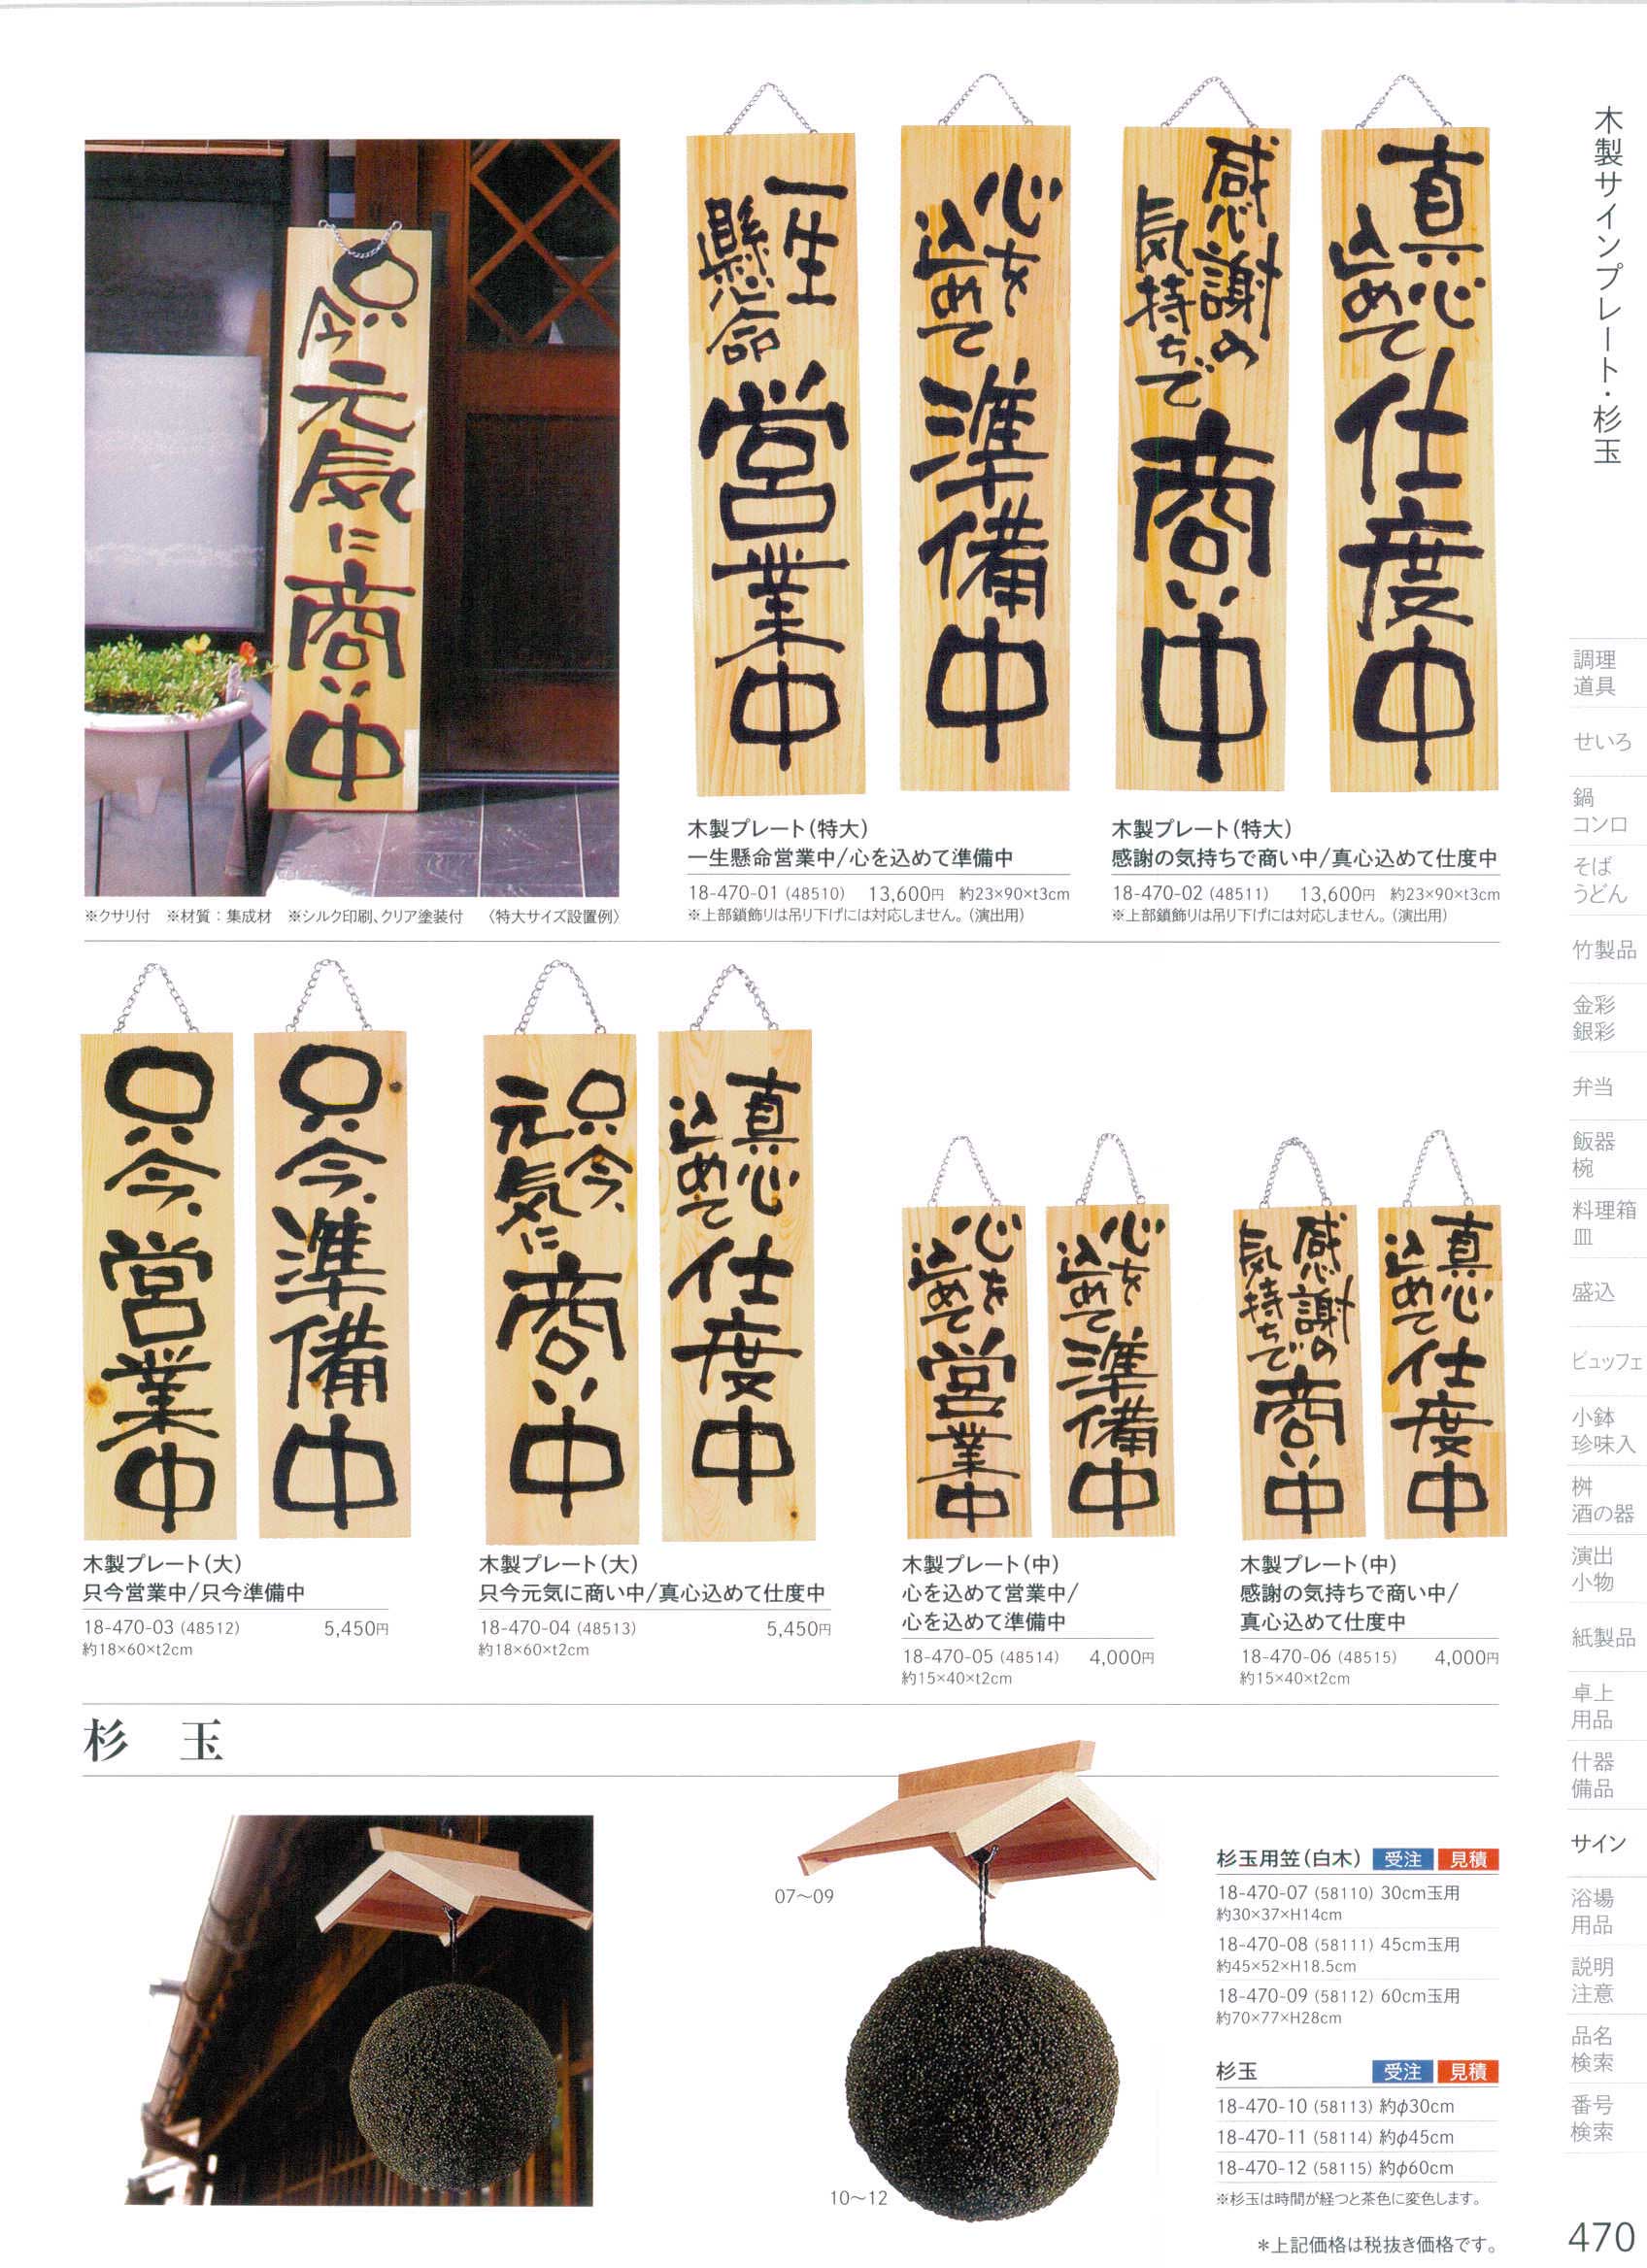 木製サインプレート・杉玉
只今
元気に
商い中
一生
懸命
営業中
心を
込めて
準備中
感謝の
気持ちで
商い中
真心
込めて
仕度中
※クサリ付　※材質：集成材　※シルク印刷、クリア塗装付　〈特大サイズ設置例〉
木製プレート(特大)
一生懸命営業中/心を込めて準備中
18-470-01 (48510)　13,600円　約23×90×t3cm
※上部鎖飾りは吊り下げには対応しません。(演出用)
木製プレート(特大)
感謝の気持ちで商い中/真心込めて仕度中
18-470-02 (48511)　13,600円　約23×90×t3cm
※上部鎖飾りは吊り下げには対応しません。(演出用)
只今、
営業中
只今、
準備中
只今、
元気に
商い中
真心
込めて
仕度中
心を
込めて
営業中
心を
込めて
準備中
感謝の
気持ちで
商い中
真心
込めて
仕度中
木製プレート(大)
只今営業中/只今準備中
18-470-03 (48512)　5,450円
約18×60×t2cm
木製プレート(大)
只今元気に商い中/真心込めて仕度中
18-470-04 (48513)　5,450円
約18×60×t2cm
木製プレート(中)
心を込めて営業中/
心を込めて準備中
18-470-05 (48514)　4,000円
約15×40×t2cm
木製プレート(中)
感謝の気持ちで商い中/
真心込めて仕度中
18-470-06 (48515)　4,000円
約15×40×t2cm
杉　玉
07〜09
10〜12
杉玉用笠(白木)　受注　見積
18-470-07 (58110) 30cm玉用
約30×37×H14cm
18-470-08 (58111) 45cm玉用
約45×52×H18.5cm
18-470-09 (58112) 60cm玉用
約70×77×H28cm
杉玉　受注　見積
18-470-10 (58113) 約φ30cm
18-470-11 (58114) 約φ45cm
18-470-12 (58115) 約φ60cm
※杉玉は時間が経つと茶色に変色します。
＊上記価格は税抜き価格です。
調理
道具
せいろ
鍋
コンロ
そば
うどん
竹製品
金彩
銀彩
弁当
飯器
椀
料理箱
皿
盛込
ビュッフェ
小鉢
珍味入
桝
酒の器
演出
小物
紙製品
卓上
用品
什器
備品
サイン
浴場
用品
説明
注意
品名
検索
番号
検索
470